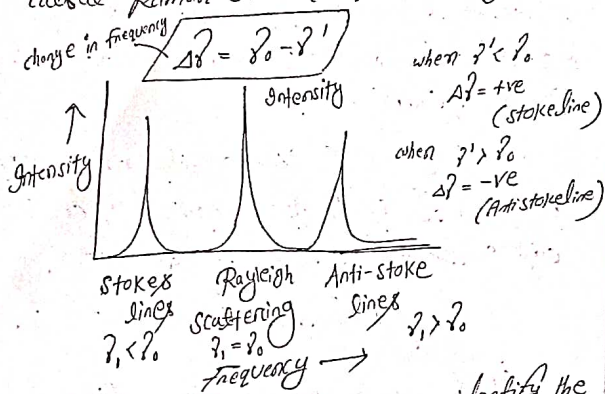 change in frequency
Δν = ν₀ - ν'
when ν' < ν₀
Δν = +ve
(stokeline)
when ν' > ν₀
Δν = -ve
(Antistokeline)
Intensity
Intensity
Stokes lines
ν₁ < ν₀
Rayleigh scattering
ν₁ = ν₀
Anti-stoke lines
ν₁ > ν₀
Frequency →
the